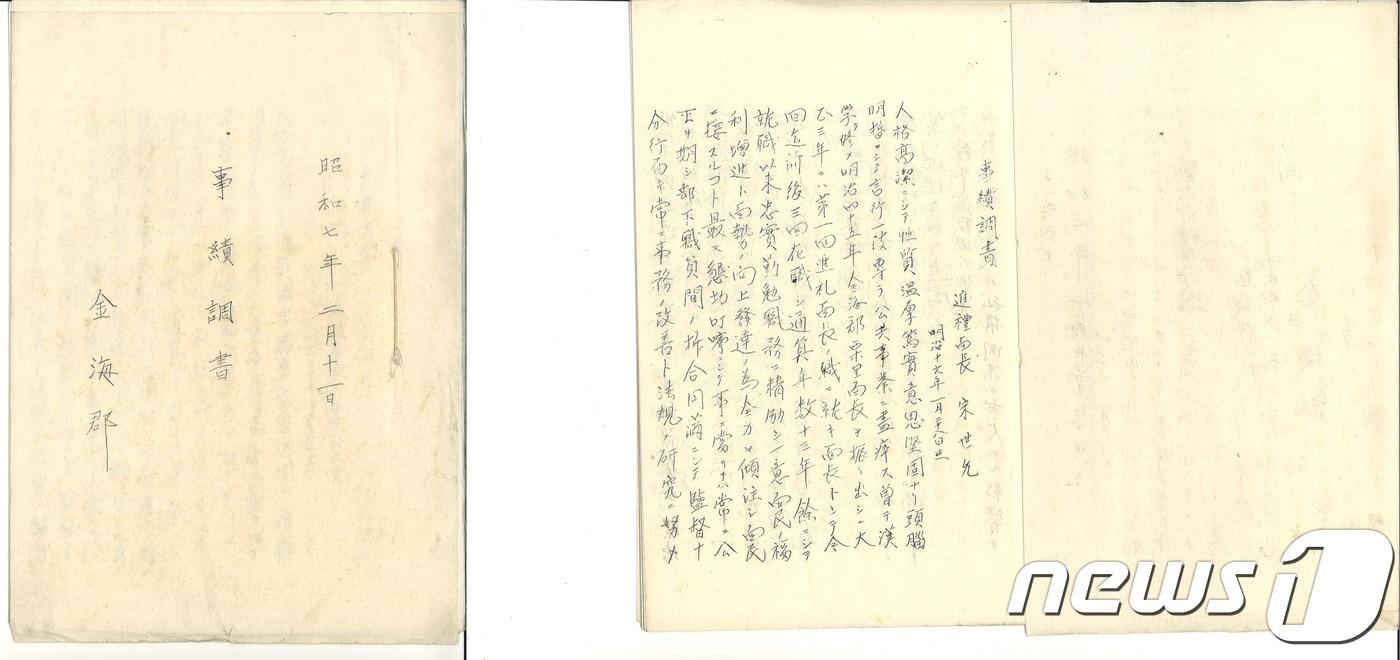 昭和七年二月十一日
事績調書
金海郡
事績調書
進禮面長 宋世允
明治十六年一月
人格高潔ニシテ性質温厚篤實意思堅固ナリ頭腦
明晳ニシテ言行一致専ラ公共事業ニ盡瘁ス曽テ漢
學ヲ修メ明治四十五年金海郡栗里面長ヲ振リ出シニ大
正三年ニハ第一回進礼面長ノ職ニ就キ面長トシテ今
回迄前後三回在職シ通算年数十二年餘ニシテ
就職以来忠實勤勉職務ニ精励シ一意面民ノ福
利増進ト面勢ノ向上發達ノ為全力ヲ傾注シ面民
ニ接スルコト最モ懇切叮嚀ニシテ事ニ當リテハ常ニ公
正ヲ期シ部下職員間ノ折合円満ニシテ監督十
分行届キ常ニ事務ノ改善ト法規ノ研究ニ努メ
news1